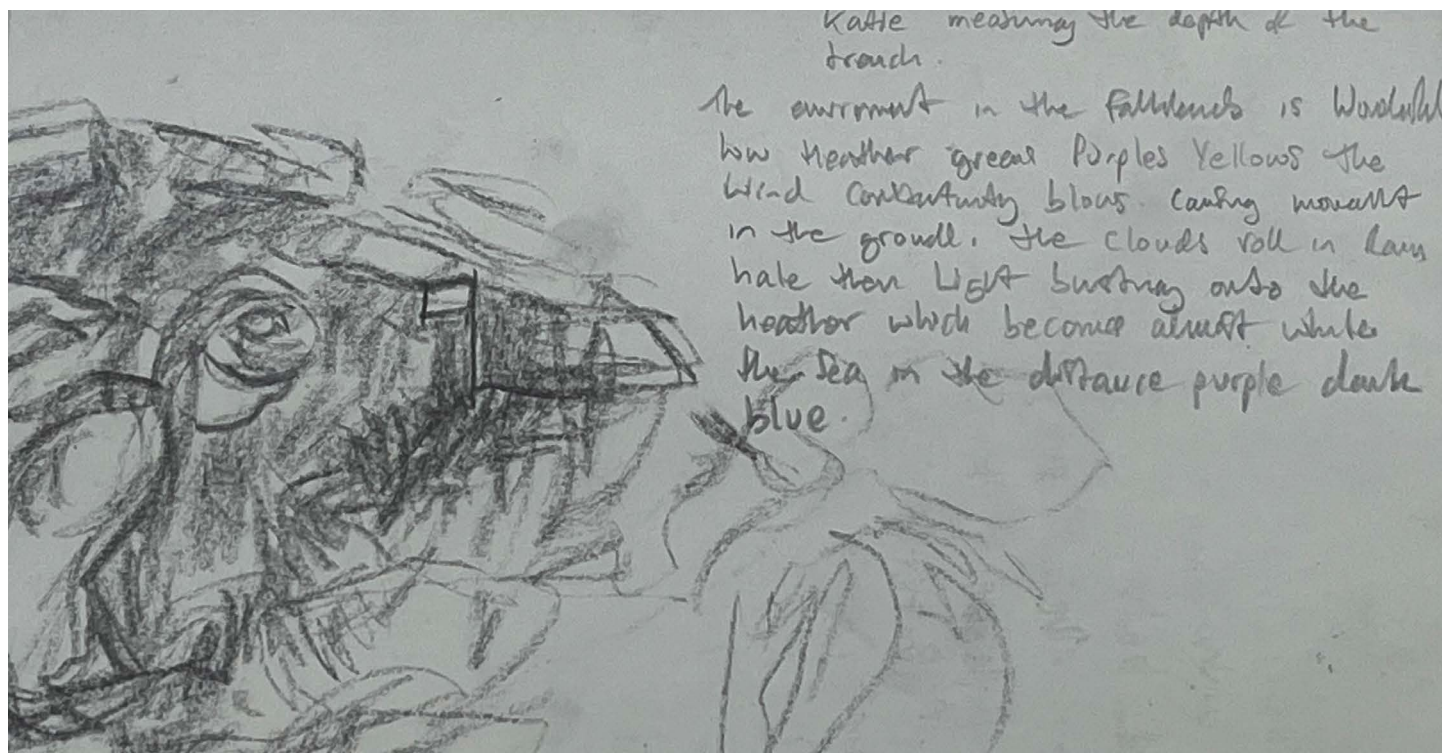 Katie measuring the depth of the
trench.
The enviroment in the Falklands is Wonderful
low Heather greens Purples Yellows the
Wind blows. causing
in the the clouds roll in Rain
hale then Light bursting onto the
heather which becomes almost white
the Sea in the distance purple dark
blue.